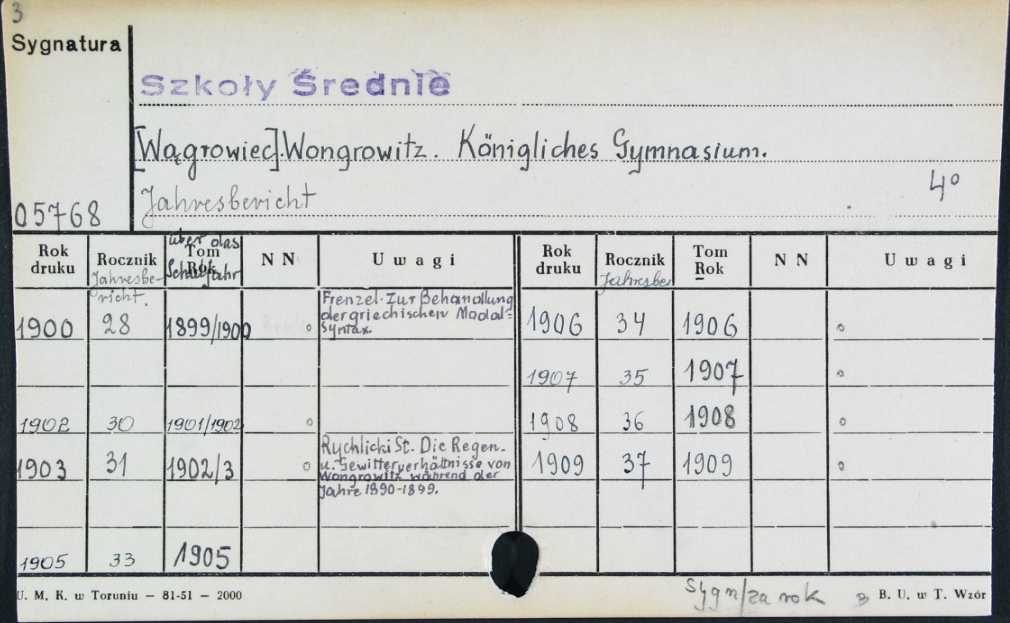 3
Sygnatura
Szkoły Średnie
[Wągrowiec].Wongrowitz. Königliches Gymnasium.
Jahresbericht 4°
05768
Rok druku Rocznik Jahresbericht. Tom Rok über das Schuljahr N N Uwagi Rok druku Rocznik Jahresber Tom Rok N N Uwagi
1900 28 1899/1900 Frenzel. Zur Behandlung
der griechischen Modal=
syntax.
1906 34 1906
1907 35 1907
1902 30 1901/1902
1908 36 1908
1903 31 1902/3 Rychlicki St. Die Regen-
u. Gewitterverhältnisse von
Wongrowitz während der
Jahre 1890-1899.
1909 37 1909
1905 33 1905
U. M. K. w Toruniu — 81-51 — 2000
Sygn/za rok
B. U. w T. Wzór